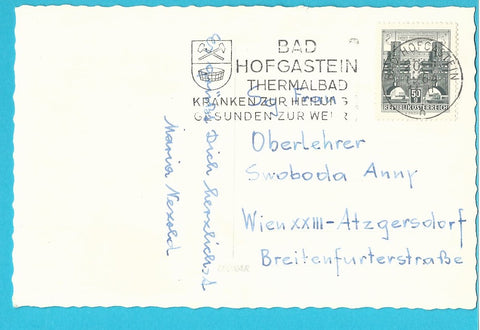 BAD
HOFGASTEIN
THERMALBAD
KRANKEN ZUR HEILUNG
GESUNDEN ZUR WEHR
HOFGASTEIN
REPUBLIK ÖSTERREICH
Frau
Oberlehrer
Swoboda Anny
Wien XXIII - Atzgersdorf
Breitenfurterstraße
Es grüßt Dich herzlichst
Maria Nezold